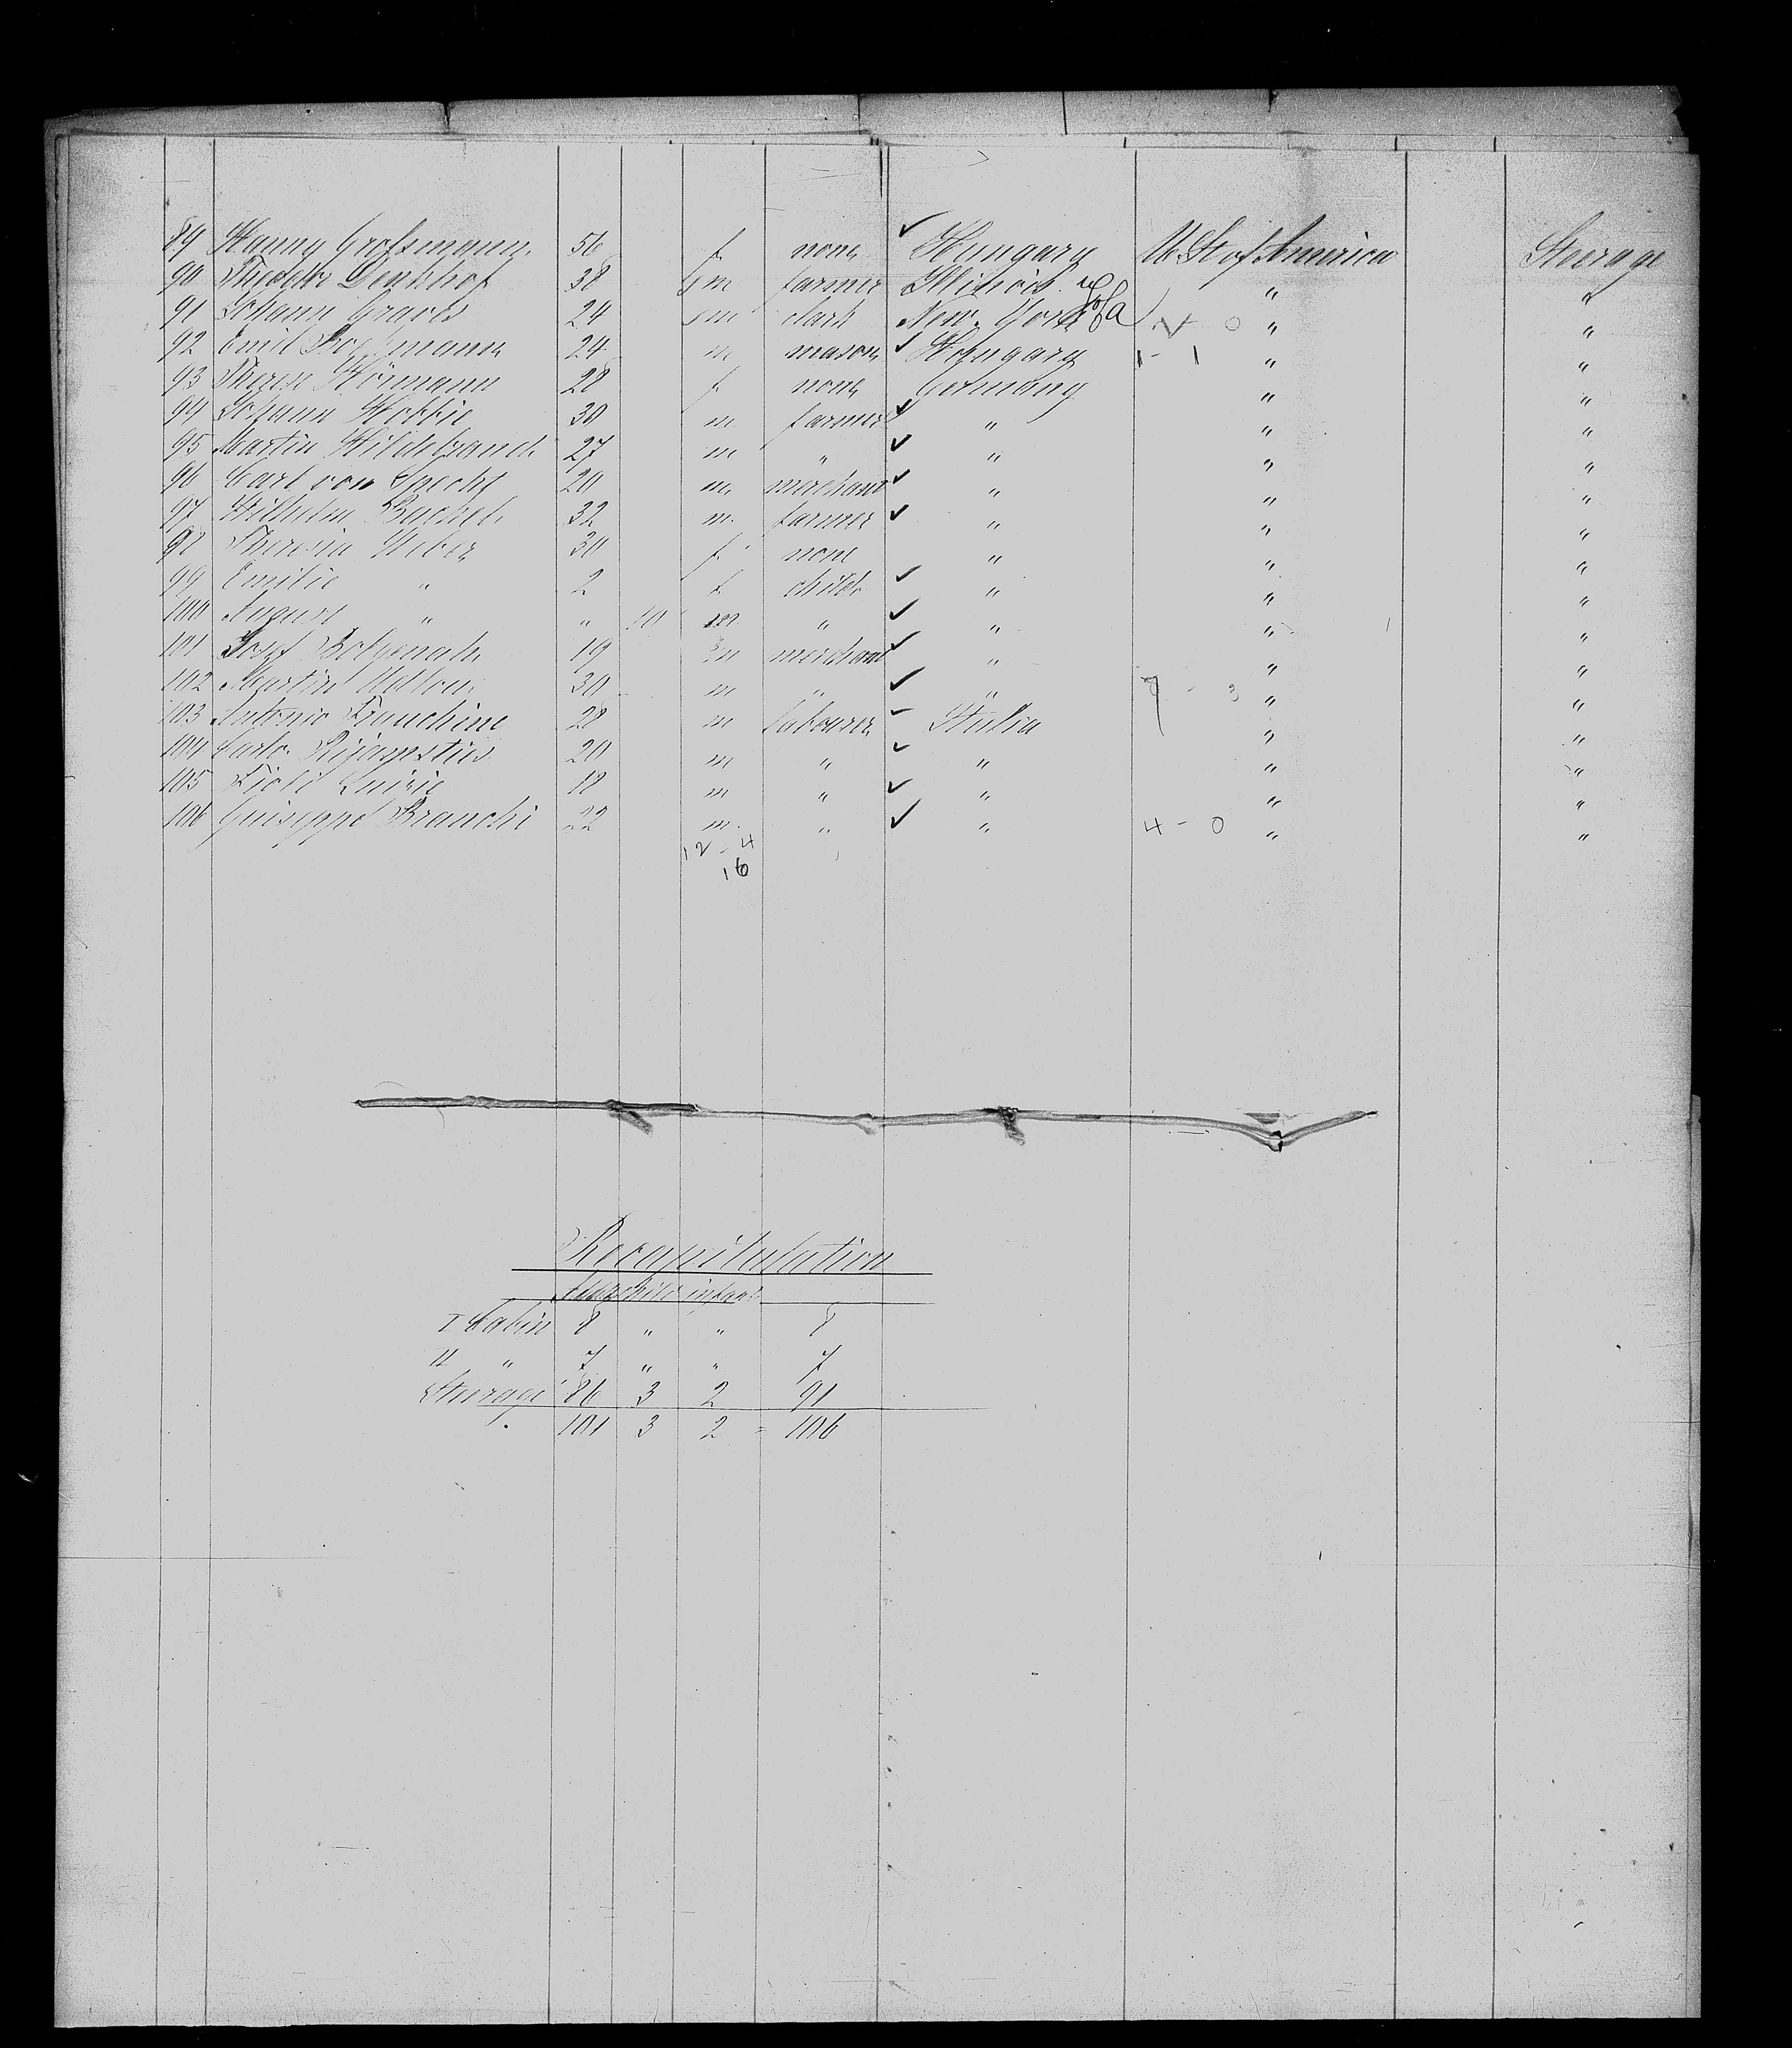 89 Hanny Grossmann 56 f none Hungary U. St of America Steerage
90 Theodor Denkhof 38 m farmer Illinois " "
91 Johann 24 m clark New York " "
92 Emil 24 m mason Hungary 1 - 1 " "
93 Therese Hörmann 28 f none Germany " "
94 Johann 30 m farmer " " "
95 Martin Hildebrand 27 m " " " "
96 Carl von Specht 20 m merchant " " "
97 Wilhelm 32 m farmer " " "
98 Theresia Weber 30 f none " " "
99 Emilie " 2 f child " " "
100 August " " 10 m " " " "
101 Josef 19 m merchant " " "
102 Martin 30 m " " 7 - 3 " "
103 Antonio 28 m labourer Italia " "
104 Carlo 20 m " " " "
105 18 m " " " "
106 Guiseppe Branchi 22 m " " 4 - 0 " "
12 - 4
16
Recapitulation
child infant
I Cabin 8 " " 8
II " 7 " " 7
Steerage 86 3 2 91
101 3 2 = 106